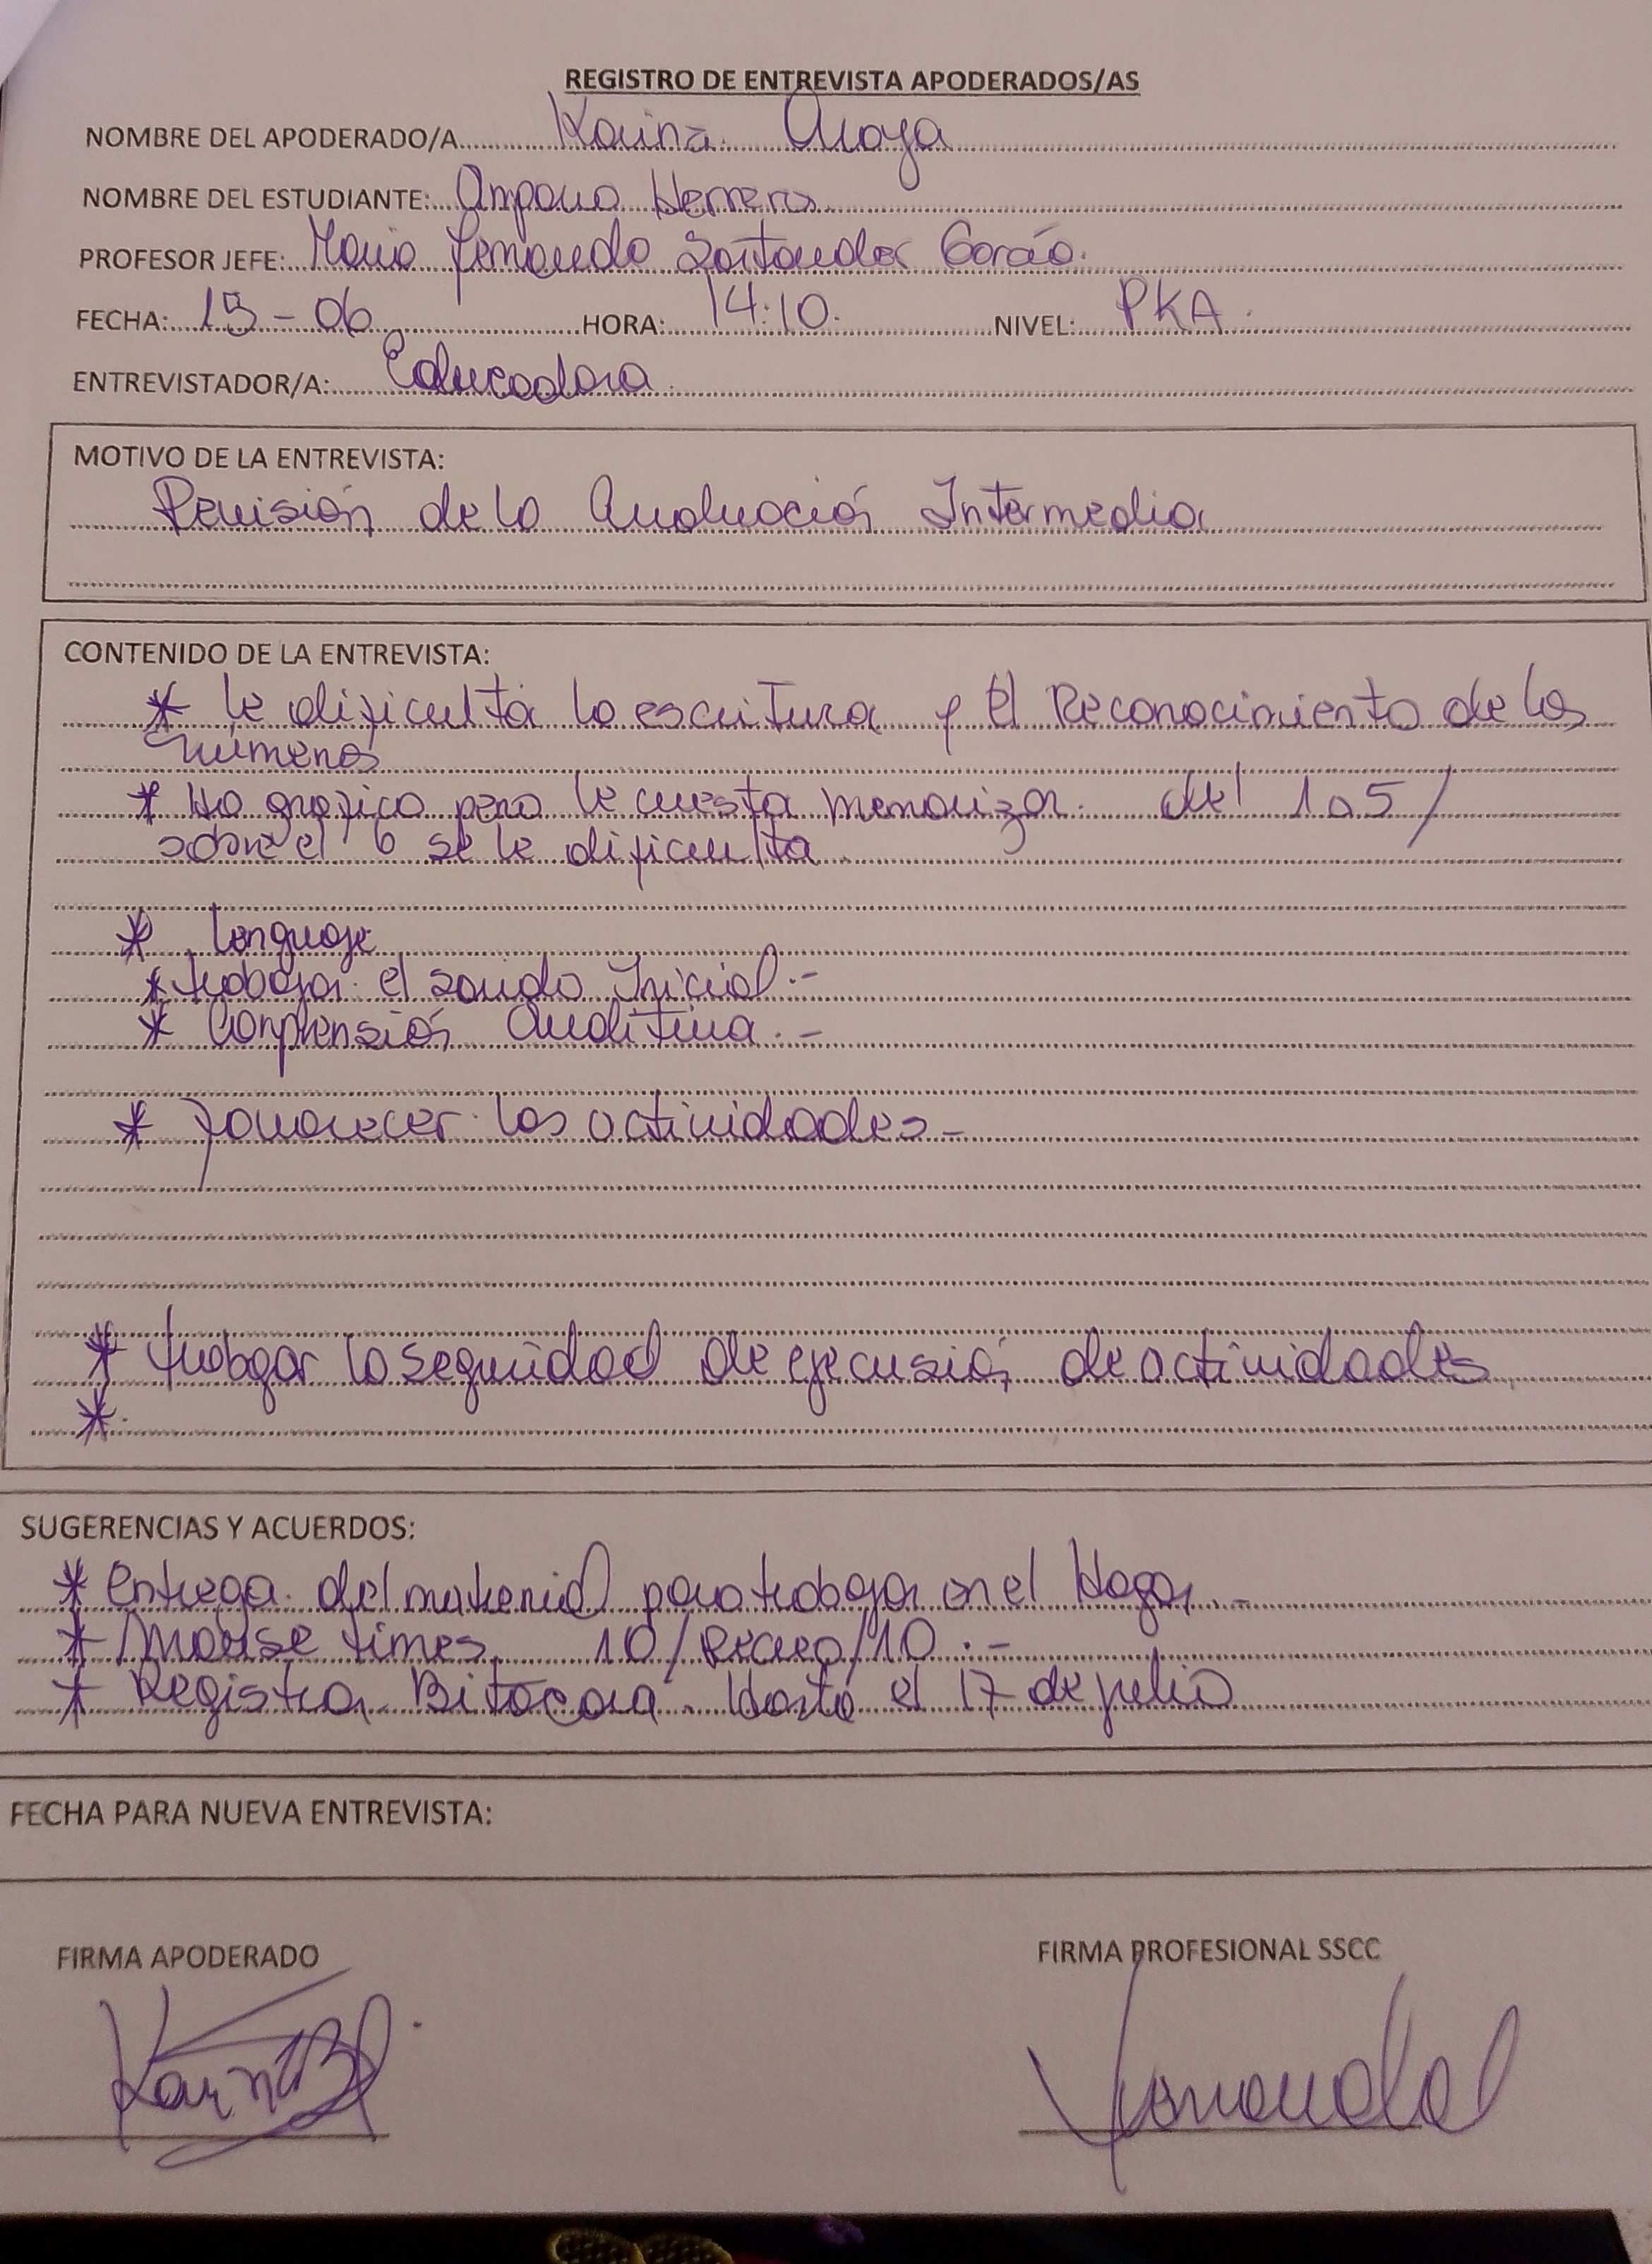 REGISTRO DE ENTREVISTA APODERADOS/AS
NOMBRE DEL APODERADO/A Karina Araya
NOMBRE DEL ESTUDIANTE: Amparo Herrera
PROFESOR JEFE: Maria Fernanda Santander García.
FECHA: 15-06 HORA: 14:10. NIVEL: PKA.
ENTREVISTADOR/A: Educadora.
MOTIVO DE LA ENTREVISTA:
Revisión de la Evaluación Intermedia
CONTENIDO DE LA ENTREVISTA:
* le dificulta la escritura y el Reconocimiento de los
números
* No grafico pero le cuesta memorizar. del 1 a 5/
sobre el 6 se le dificulta
* Lenguaje
* trabajar el sonido Inicial.-
* Comprensión Auditiva.-
* favorecer las actividades-
* trabajar la seguridad de ejecusión de actividades
*
SUGERENCIAS Y ACUERDOS:
* Entrega del material para trabajar en el Hogar.-
* times 10/Recreo/10.-
* Registrar Bitacora Hasta el 17 de julio
FECHA PARA NUEVA ENTREVISTA:
FIRMA APODERADO FIRMA PROFESIONAL SSCC